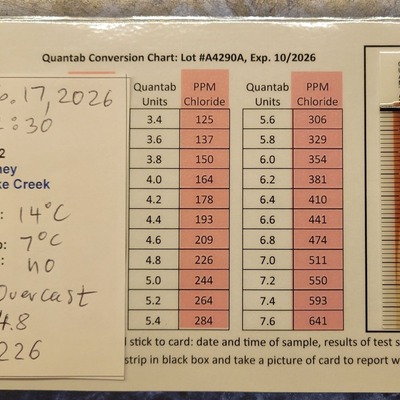 Quantab Conversion Chart: Lot #A4290A, Exp. 10/2026
Quantab Units PPM Chloride Quantab Units PPM Chloride
3.4 125 5.6 306
3.6 137 5.8 329
3.8 150 6.0 354
4.0 164 6.2 381
4.2 178 6.4 410
4.4 193 6.6 441
4.6 209 6.8 474
4.8 226 7.0 511
5.0 244 7.2 550
5.2 264 7.4 593
5.4 284 7.6 641
stick to card: date and time of sample, results of test s
strip in black box and take a picture of card to report w
17, 2026
:30
2
ney
ke Creek
: 14°C
: 7°C
: no
Overcast
4.8
226